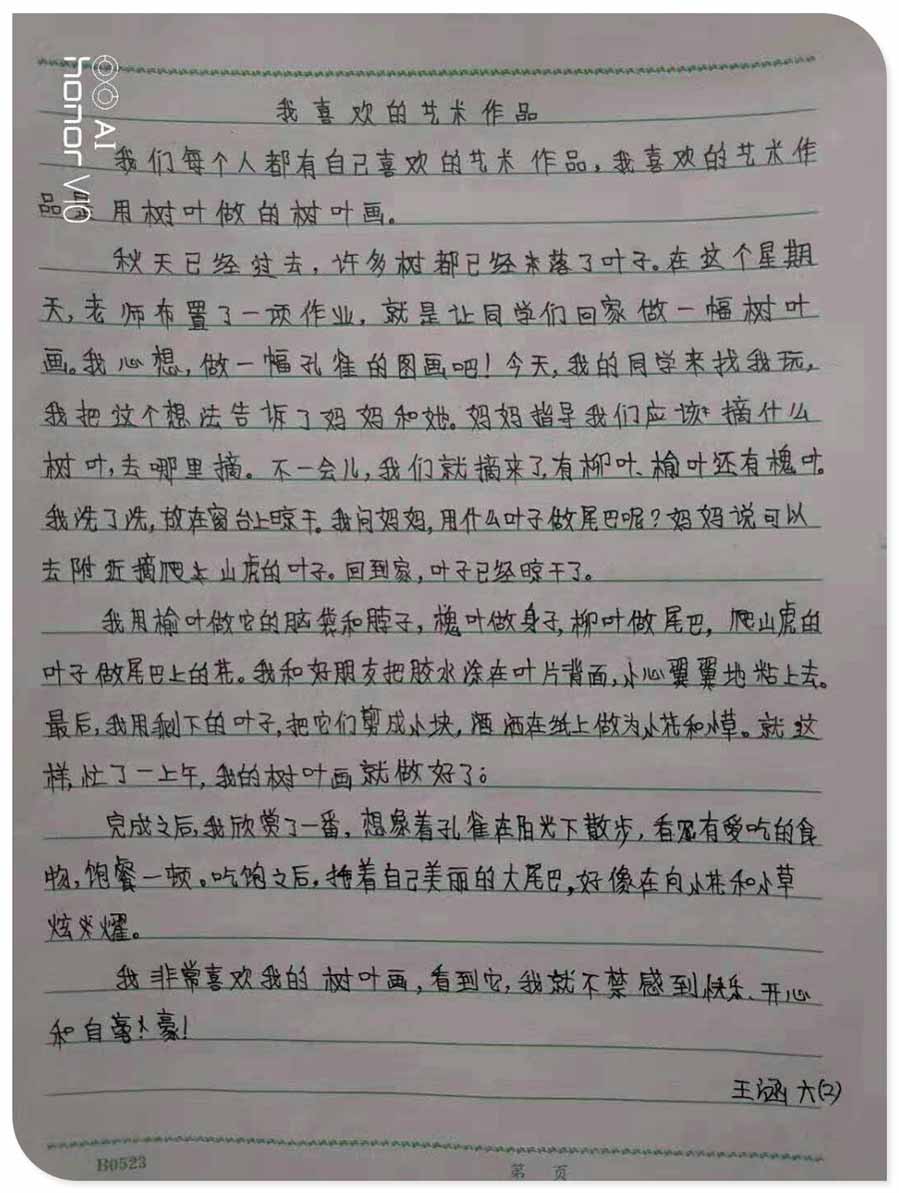 honor V10
AI
我喜欢的艺术作品
我们每个人都有自己喜欢的艺术作品，我喜欢的艺术作
品 用树叶做的树叶画。
秋天已经过去，许多树都已经落了叶子。在这个星期
天，老师布置了一项作业，就是让同学们回家做一幅树叶
画。我心想，做一幅孔雀的图画吧！今天，我的同学来找我玩，
我把这个想法告诉了妈妈和她。妈妈指导我们应该摘什么
树叶，去哪里摘。不一会儿，我们就摘来了，有柳叶、榆叶还有槐叶。
我洗了洗，放在窗台上晾干。我问妈妈，用什么叶子做尾巴呢？妈妈说可以
去附近摘爬山虎的叶子。回到家，叶子已经晾干了。
我用榆叶做它的脑袋和脖子，槐叶做身子，柳叶做尾巴，爬山虎的
叶子做尾巴上的花。我和好朋友把胶水涂在叶片背面，小心翼翼地粘上去。
最后，我用剩下的叶子，把它们剪成小块，洒洒在纸上做为小花和小草。就这
样，忙了一上午，我的树叶画就做好了。
完成之后，我欣赏了一番，想象着孔雀在阳光下散步，看见有爱吃的食
物，饱餐一顿。吃饱之后，拖着自己美丽的大尾巴，好像在向小花和小草
炫耀。
我非常喜欢我的树叶画，看到它，我就不禁感到快乐、开心
和自豪！
王涵 六(2)
B0523
第 页